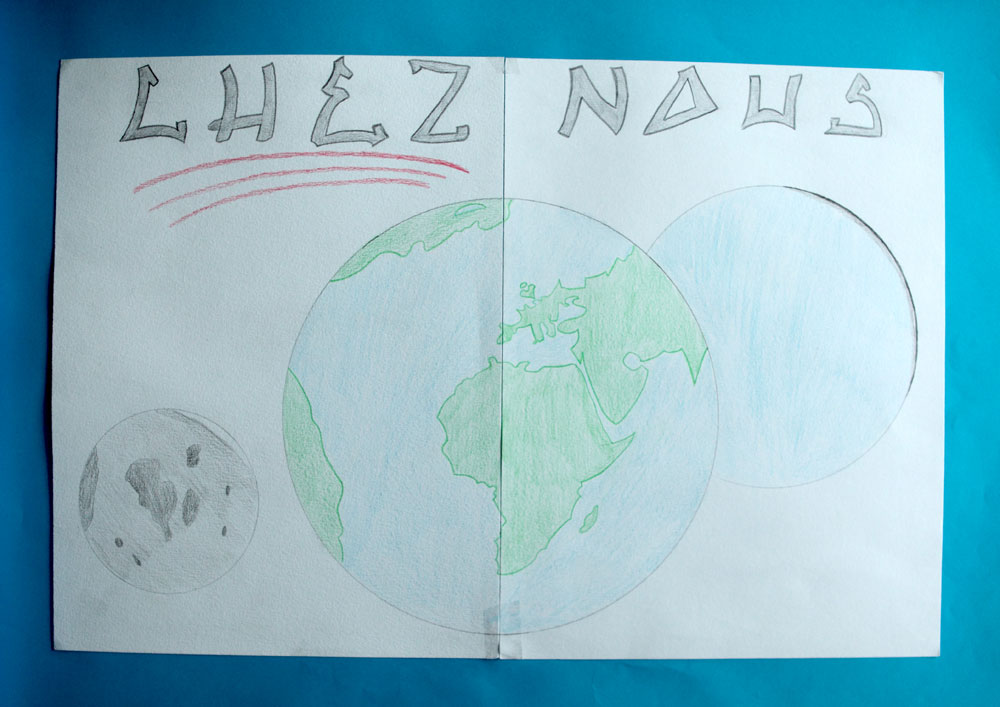 CHEZ NOUS